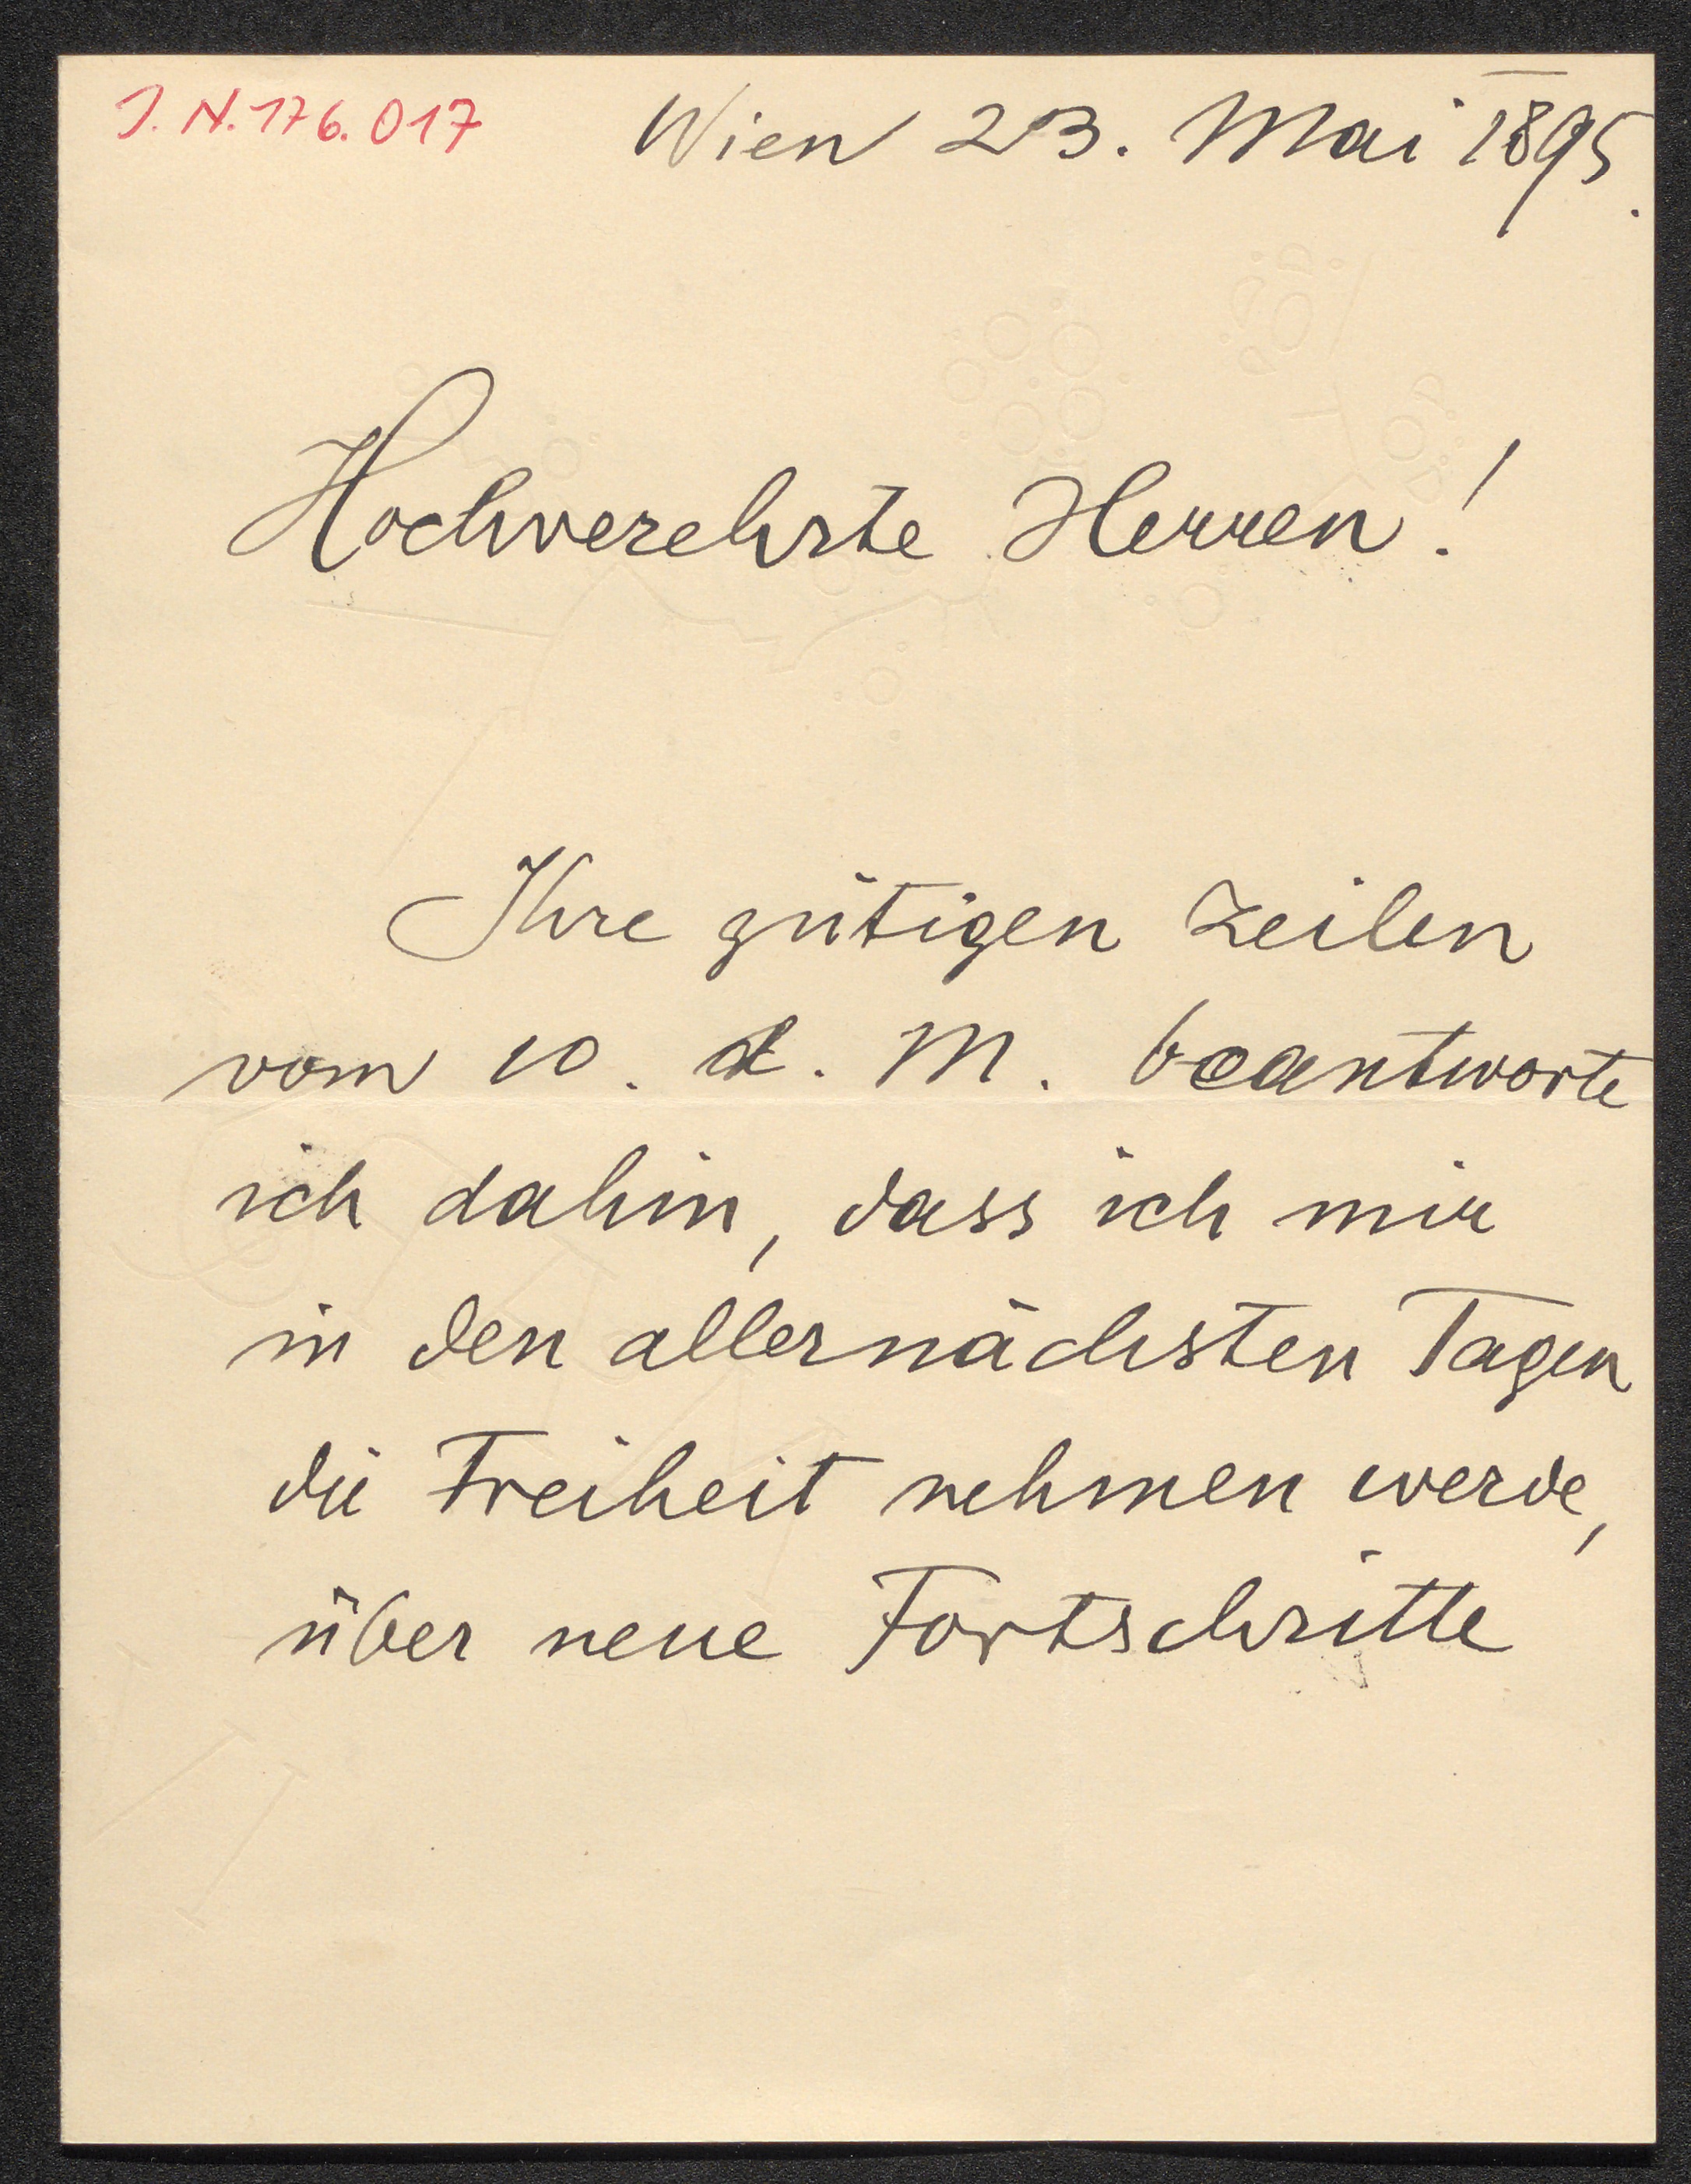 J. N. 176.017
Wien 23. Mai 1895.
Hochverehrte Herren!
Ihre gütigen Zeilen
vom 10. d. M. beantworte
ich dahin, dass ich mir
in den allernächsten Tagen
die Freiheit nehmen werde,
über neue Fortschritte